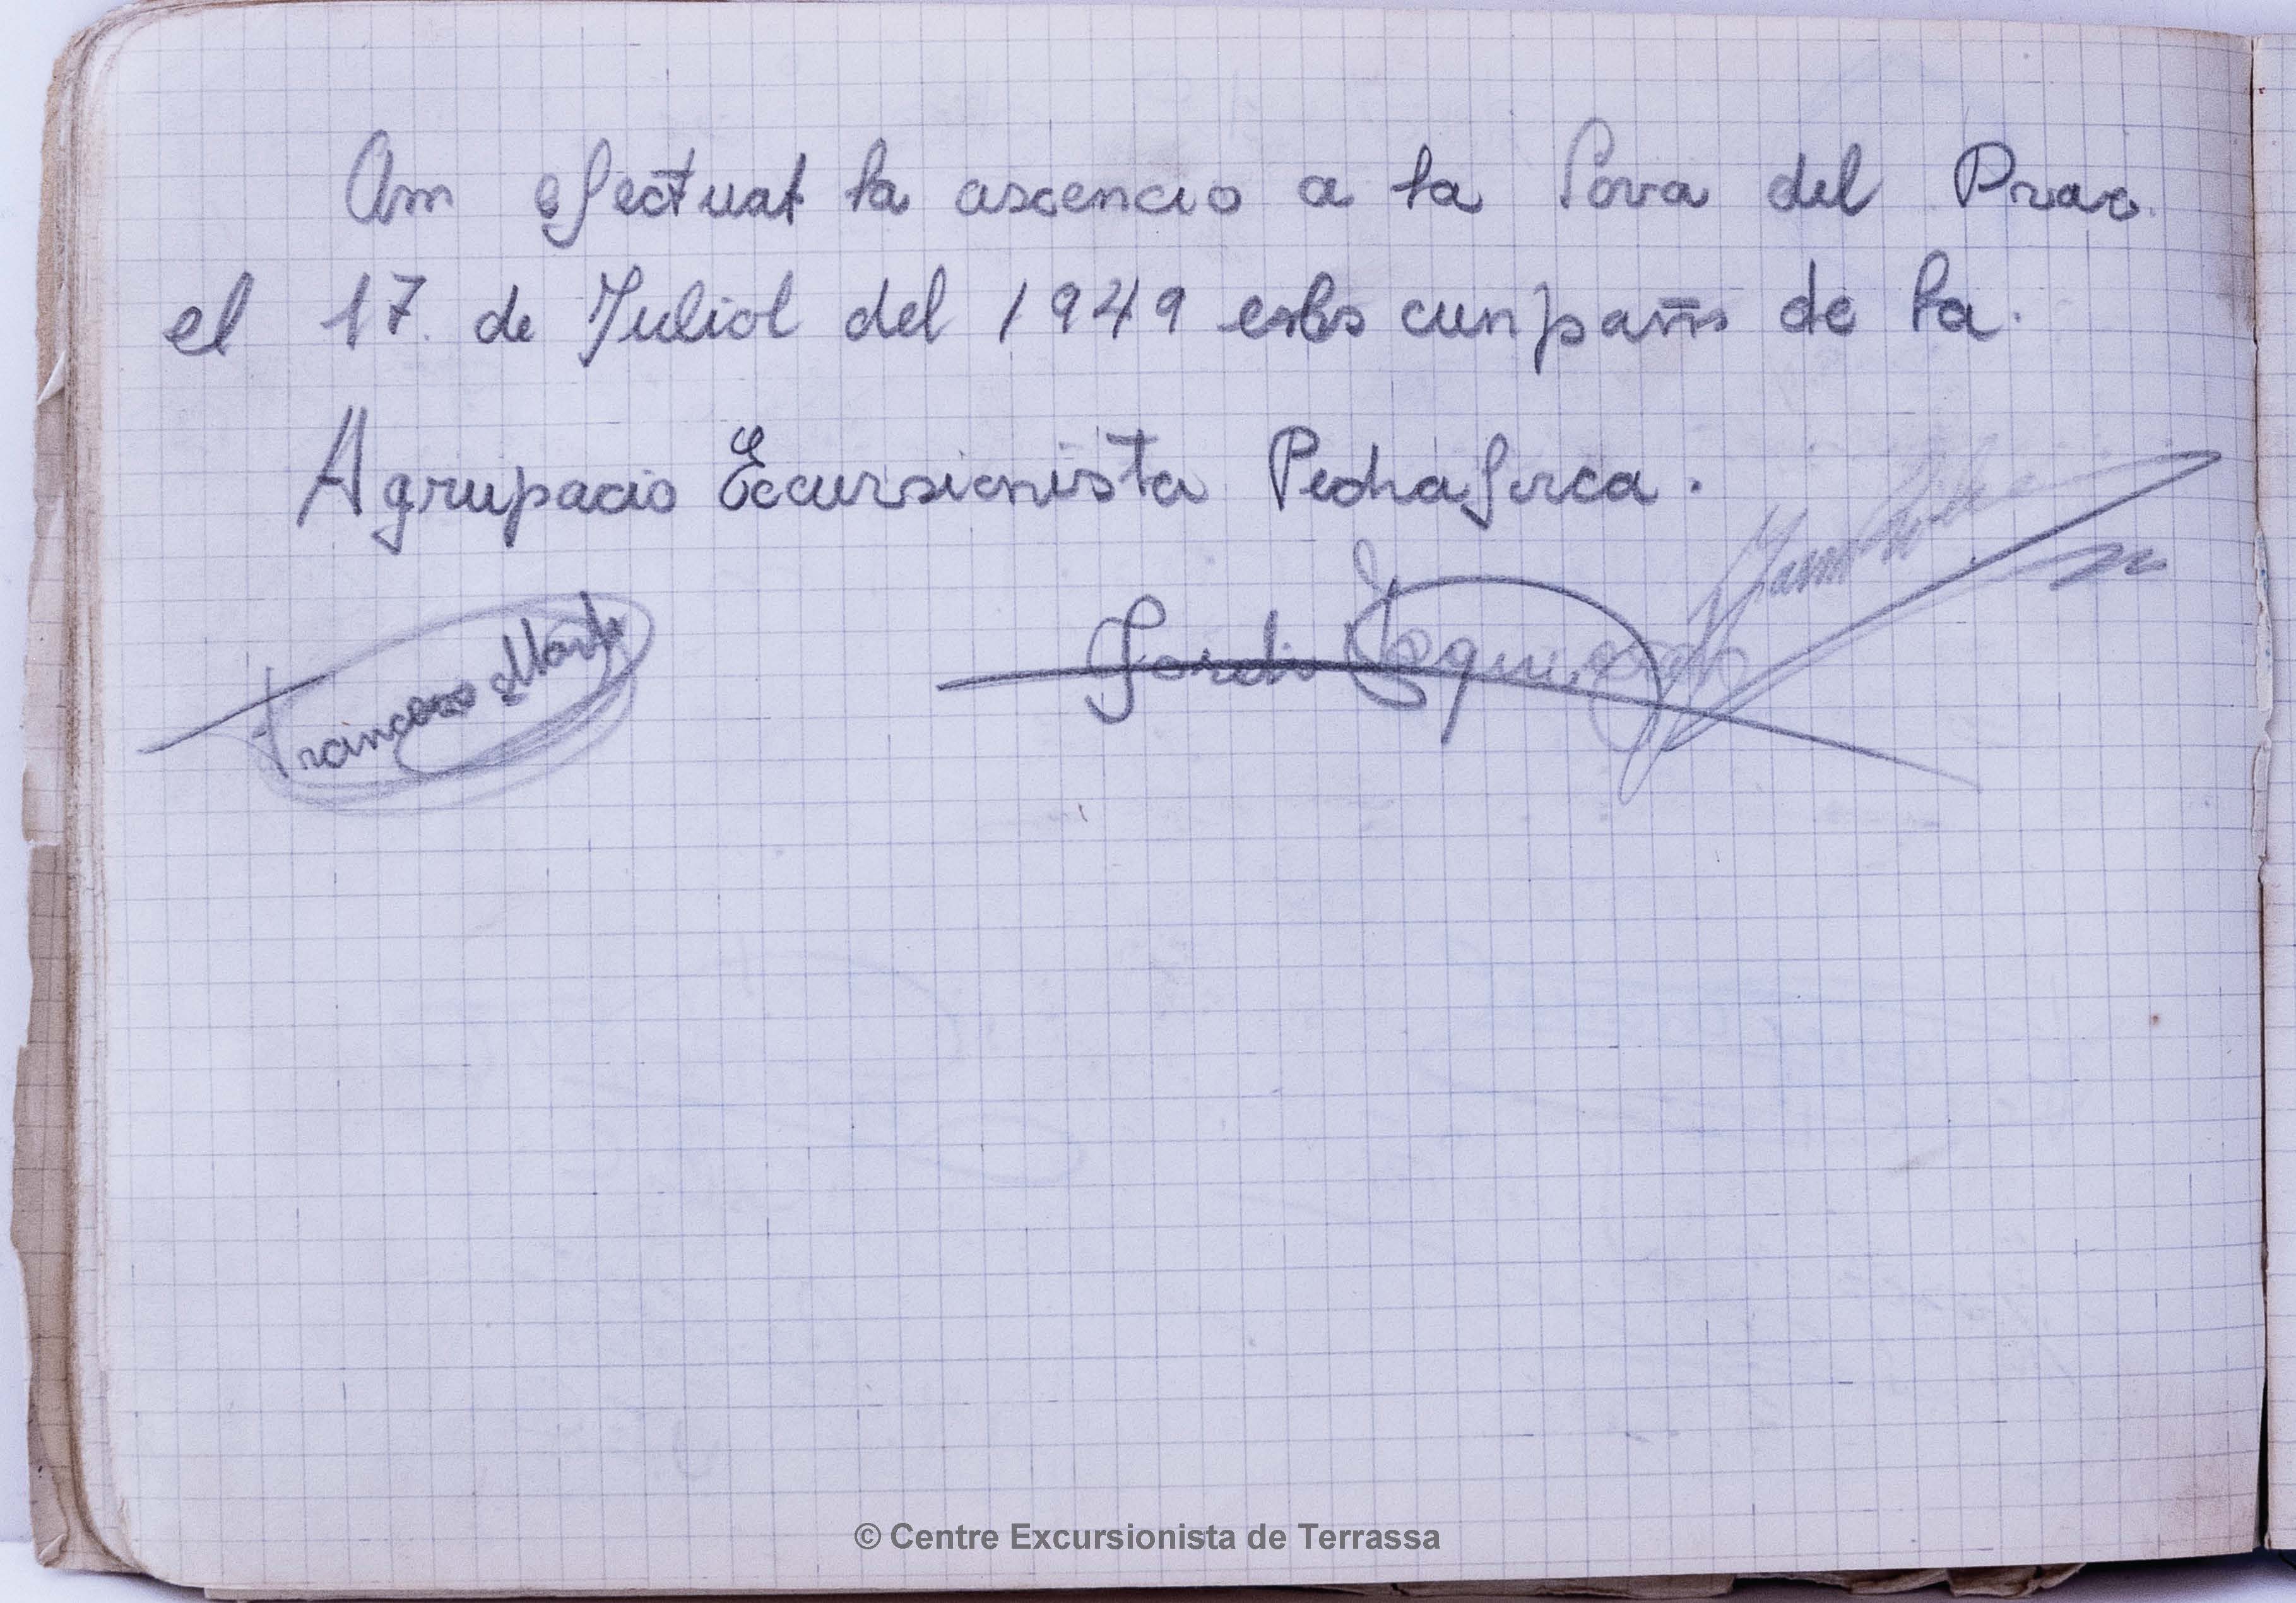 Am efectuat la ascencio a la Pova del Prao
el 17 de Juliol del 1949 esls cunpañs de la.
Agrupacio Excursionista Pedraforca.
Francesc Martí
Jordi
© Centre Excursionista de Terrassa